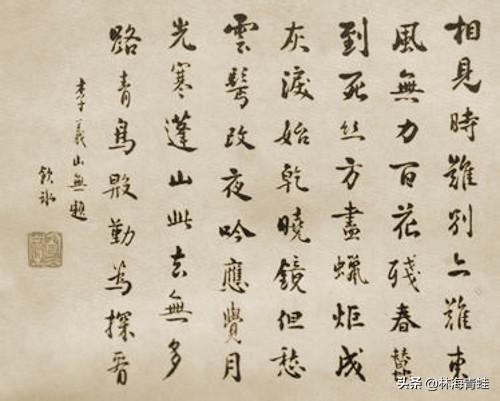 相見時難別亦難東
風無力百花殘春蠶
到死絲方盡蠟炬成
灰淚始乾曉鏡但愁
雲鬢改夜吟應覺月
光寒蓬山此去無多
路青鳥殷勤為探看
李義山無題
飲冰
头条 @林海青蛙